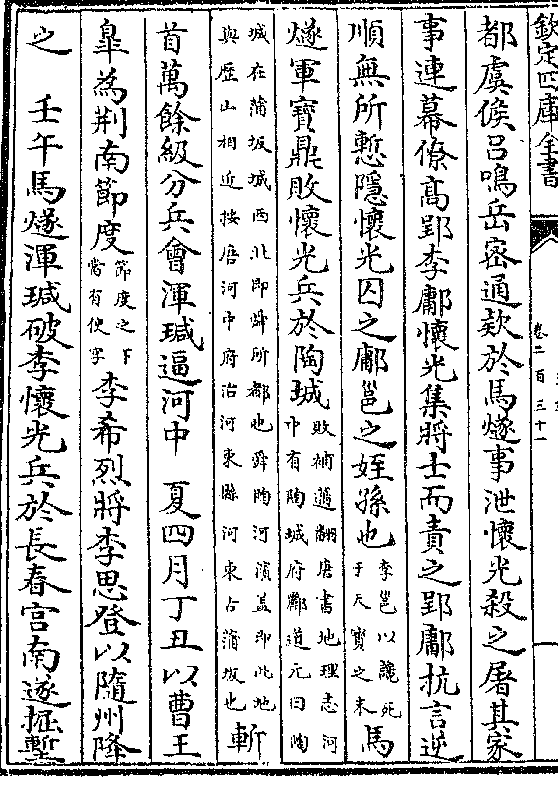 欽定四庫全書
卷二百三十一
都虞候吕鳴岳密通欵於馬燧事泄懷光殺之屠其家
事連幕僚高郢李鄘懷光集將士而責之郢鄘抗言逆
順無所慙隱懷光囚之鄘邕之姪孫也李邕以䜛死于天寶之末馬
燧軍寶鼎敗懷光兵於陶城敗補邁翻唐書地理志河中有陶城府酈道元曰陶
城在蒲坂城西北即舜所都也舜陶河濱蓋即此地與歷山相近按唐河中府治河東縣河東古蒲坂也斬
首萬餘級分兵會渾瑊逼河中　夏四月丁丑以曹王
臯為荆南節度節度之下當有使字李希烈將李思登以隨州降
之　壬午馬燧渾瑊破李懷光兵於長春宮南遂掘塹